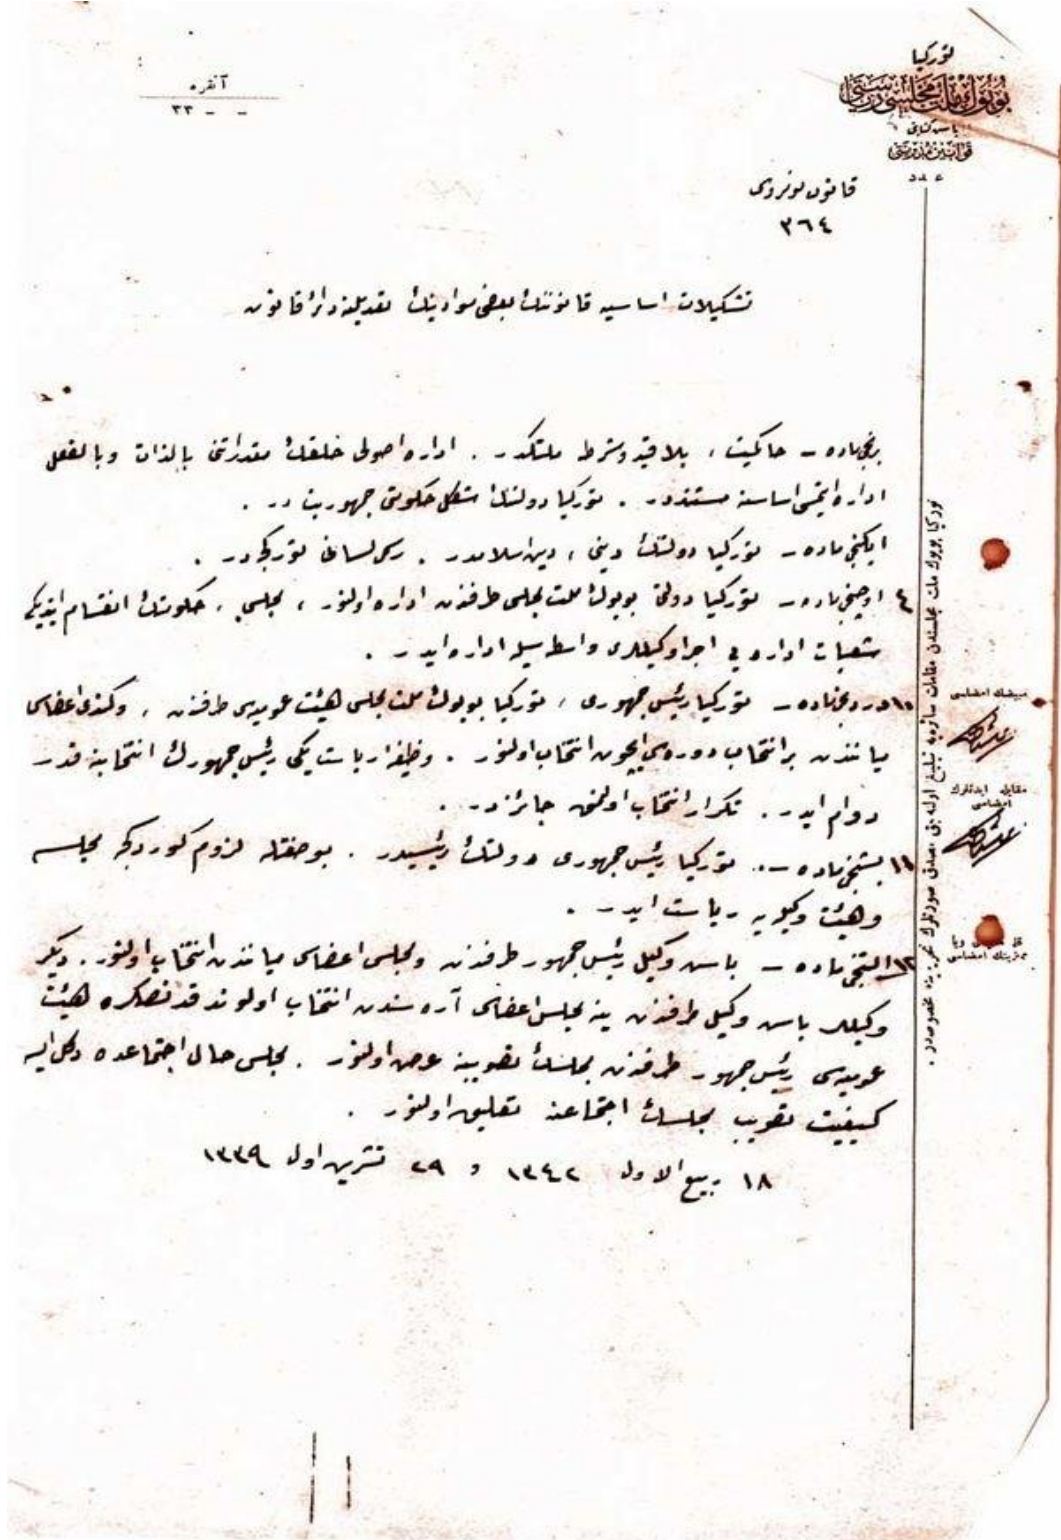 توركيا
بويوك ملت مجلسی رياستی
باش كتابتی
قوانين مديريتی
عدد
آنقره
- - ٣٣
قانون نومروسی
٣٦٤
تشكيلات اساسيه قانوننك بعض موادينك تعديلنه دائر قانون
برنجی ماده – حاكميت، بلا قيد و شرط ملتكدر . اداره اصولی خلقك مقدراتنی بالذات و بالفعل
اداره ايتمسی اساسنه مستنددر . توركيا دولتنك شكل حكومتی جمهوريت در .
ايكنجی ماده – توركيا دولتنك دينی ، دين اسلامدر . رسمی لسانی توركجه در .
٤ اوچنجی ماده – توركيا دولتی بويوك ملت مجلسی طرفندن اداره اولنور ، مجلس ، حكومتك انقسام ايتديكی
شعبات اداره يی اجرا وكيللری واسطه سيله اداره ايدر .
١٠ دردنجی ماده – توركيا رئيس جمهوری ، توركيا بويوك ملت مجلسی هيئت عموميه سی طرفندن ، و كندی اعضاسی
مياننندن بر انتخاب دوره سی ايچون انتخاب اولنور . وظيفۀ رياست يكی رئيس جمهورك انتخابنه قدر
دوام ايدر . تكرار انتخاب اولنمق جائزدر .
١١ بشنجی ماده – توركيا رئيس جمهوری دولتك رئيسيدر . بو صفتله لزوم كوردكجه مجلسه
و هيئت وكيليه يه رياست ايدر .
١٢ آلتنجی ماده – باش وكيل رئيس جمهور طرفندن و مجلس اعضاسی مياننندن انتخاب اولنور . ديكر
وكيللر باش وكيل طرفندن ينه مجلس اعضاسی آره سندن انتخاب اولوندقدنصكره هيئت
عموميه سی رئيس جمهور طرفندن مجلسك تصويبنه عرض اولنور . مجلس حال اجتماعده دكل ايسه
كيفيت تصويب مجلسك اجتماعنه تعليق اولنور .
١٨ ربيع الاول ١٣٤٢ و ٢٩ تشرين اول ١٣٣٩
توركيا بويوك ملت مجلسندن مقامات سائره يه تبليغ اوله جق مصدق صورتلرك تحريرينه مخصوصدر .
مبيضك امضاسی
مقابله ايدنلرك
امضاسی
مميزينك امضاسی